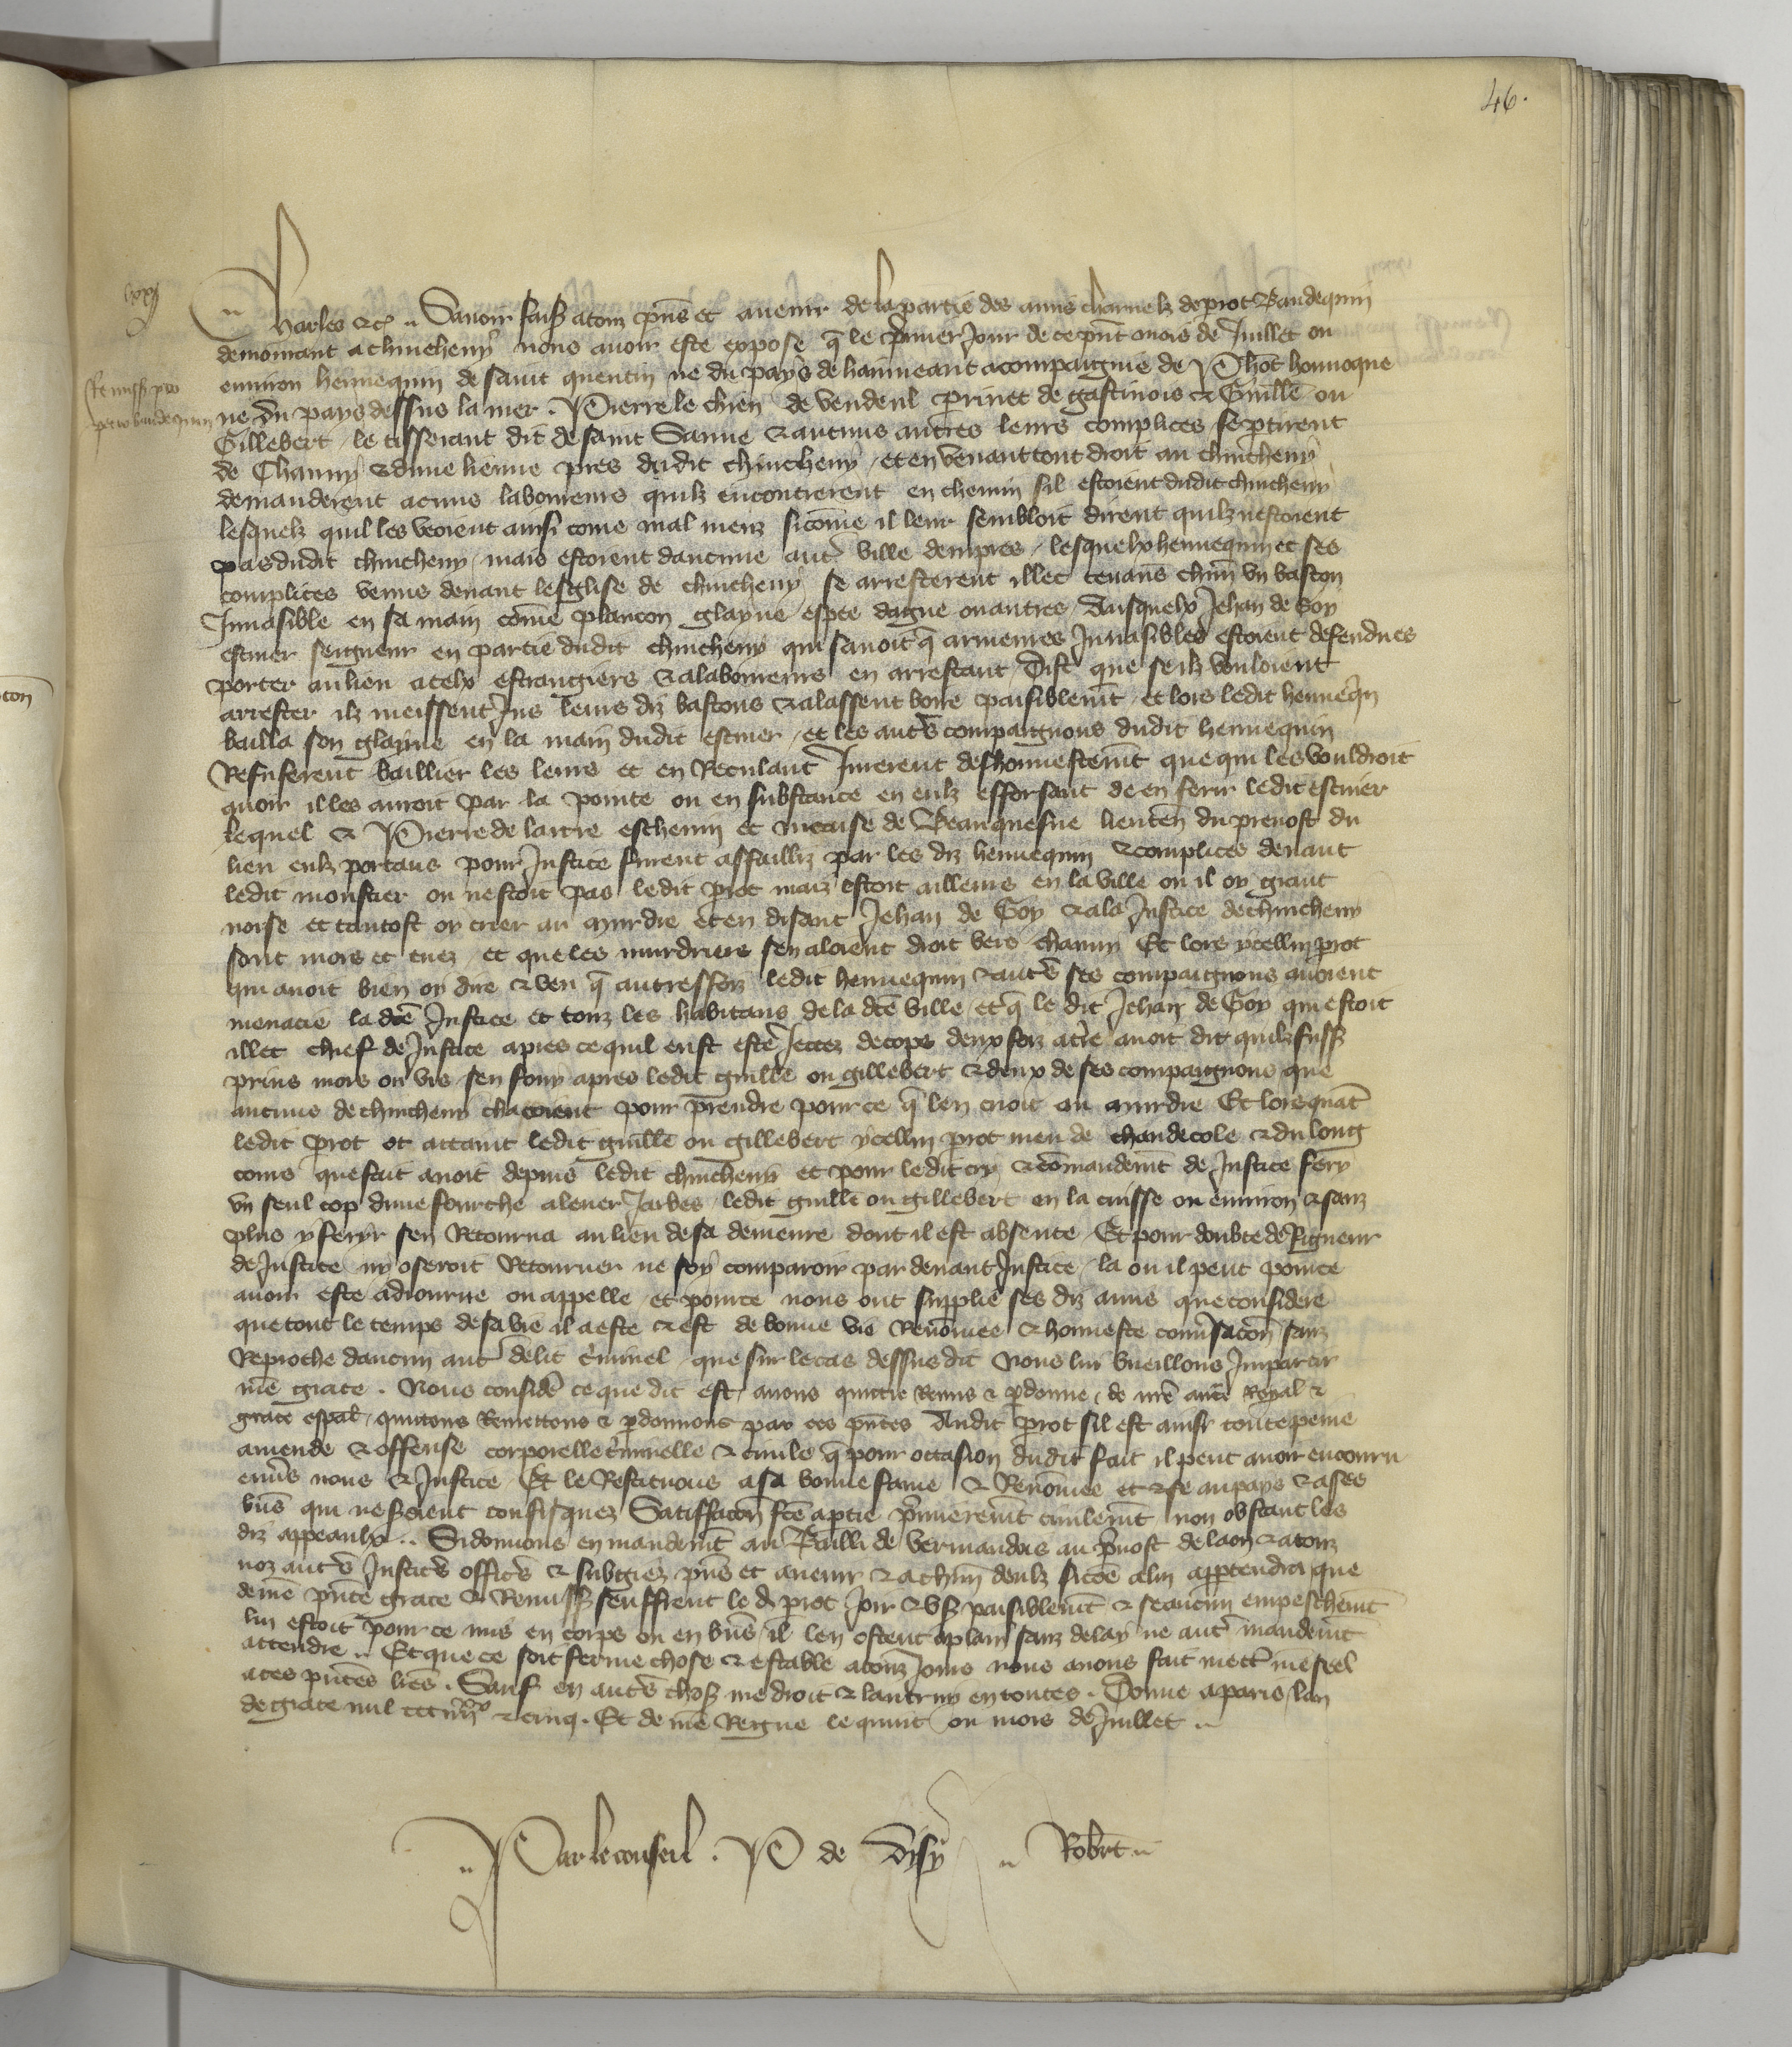 46.
lxxj
Charles etc. Savoir faisz a touz pñs et avenir de la partie des amis charnelz de prot Baudequin
demourant a chincheny nous avoir este expose q̃ le p̃mier jour de ce pñt mois de juillet ou
environ hennequin de saint quentin ne du pays de hainneaut acompaignie de Phōt honnoque
Remissio pro
petro baudequin
ne du pays dessus la mer. Pierre le chien de vendeul perinet de gastinois & Guillē ou
Gillebert le tisserant dit de saint Sanne & aucuns autres leurs complices se p̃tirent
de Channy & dune lieuue pres dudit chincheny, et en venant tout droit au chincheny
demanderent acuns laboureurs quilz encontrerent en chemin sil estoient dudit chincheny
lesquelz quil les veoient ainsi come mal meuz sicōme il leur sembloit dirent quilz nestoient
pas dudit chincheny, mais estoient daucune autr̃ ville dempres, lesquelx hennequin et ses
complices venus devant lesglise de chincheny se arresterent illec tenans chūn vn baston
Invasible en sa main cōme plancon glayve espee dague ou autres Ausquelx Jehan de Goy
escuier seigneur en partie dudit chincheny qui savoit q̃ armeures Invasibles estoient defendues
porter au lieu a telx estrangiers & a laboureurs en arrestant, dist que se ilz vouloient
arrester ilz meissent jus leurs diz bastons & alassent boire paisiblemt̃, et lors ledit henneq̃n
bailla son glayve en la main dudit escuier, et les autr̃s compaignons dudit hennequin
Refuserent baillier les leurs et en Reculant Jurerent deshonnestemt̃ que qui les vouldroit
avoir il les auroit par la pointe ou en substance en eulz efforsant de en ferir ledit escuier
lequel & Pierre de lattre eschevin et nicaise de Beauquesne lieuten̄ du prevost du
lieu eulz portans pour Justice furent assailliz par les diz hennequin & complices devant
ledit monstier ou nestoit pas ledit prot maiz estoit ailleurs en la ville ou il oy grant
noise et tantost oy crier au murdre et en disant Jehan de Goy & a la Justice de chincheny
sont mors et tuez, et que les murdriers sen aloient droit vers channy Et lors ycellui prot
qui avoit bien oy dire & veu q̃ autresfoiz ledit hennequin & autr̃s ses compaignons avoient
menacie la dc̃e Justice et touz les habitans de la dc̃e ville, et q̃ le dit Jehan de Goy qui estoit
illec chief de Justice apres ce quil eust este Jettez de cops deux foiz a tr̃e avoit dit quilz fuss̃
prins mors ou vis sen fouy apres ledit guillē ou gillebert & deux de ses compaignons que
aucuns de chincheny chacoient pour prendre pour ce q̃ len crioit au murdre Et lors quāt
ledit prot ot attaint ledit guillē ou gillebert ycellui prot meu de chaudecole & du long
cours que fait avoit depuis ledit chincheny et pour ledit cry & cōmandemt̃ de Justice fery
vn seul cop dune fourche a lever Jarbes, ledit guillē ou gillebert en la cuisse ou environ & sanz
plus y feryr sen Retourna au lieu de sa demeure dont il est absente, Et pour doubte de Rigueur
de Justice ny oseroit Retourner ne soy comparoir par devant Justice, la ou il peut pour ce
avoir este adiourne ou appelle, et pour ce nous ont supplie ses diz amis que considere
que tout le temps de sa vie il a este & est de bonne vie Renōmee & honneste conv̄sacōn sanz
Reproche daucun autr̃ delit c̃minel, que sur le cas dessus dit Nous lui vueillons Impartir
nr̃e grace. Nous consider̃ ce que dit est, avons quictie Remis & p̃donne, de nr̃e auct̃e Royal &
grace esp̃al, quittons Remettons & p̃donnons par ces pñtes Audit prot sil est ainsi toute peine
amende & offense corporelle c̃minelle & civile q̃ pour occasion dudit fait il peut avoir encouru
env̄s nous & Justice, Et le Restituons a sa bonne fame & Renōmee et & se au pays & a ses
biēs qui ne seroient confisquez Satisfacōn fc̃e a p̃tie p̃mieremt̃ civilemt̃ non obstant les
diz appeaulx.. Si donnons en mandemt̃ au Bailli de vermandois au p̃vost de laon & a touz
noz autr̃s Justic̃s offic̃s & subgiez pñs et avenir & a chūn deulz sicōe a lui app̃tendra que
de nr̃e pñte grace & Remiss̃ seuffrent le d̃ prot Joir & vs̃ paisiblemt̃ & se aucun empeschemt̃
lui estoit pour ce mis en corps ou en biēs, il len ostent a plain sanz delay ne autr̃ mandemt̃
attendre.. Et que ce soit ferme chose & estable a touz Jours nous avons fait mettr̃ nr̃e seel
a ces pñtes lr̃es. Sauf en autr̃s chos̃ nr̃e droit & lautruy en toutes. Donne a paris, lan
de grace mil ccc iiiixx & cinq. Et de nr̃e Regne le quint ou mois de Juillet..
.. Par le conseil. P de Disy .. Robert..